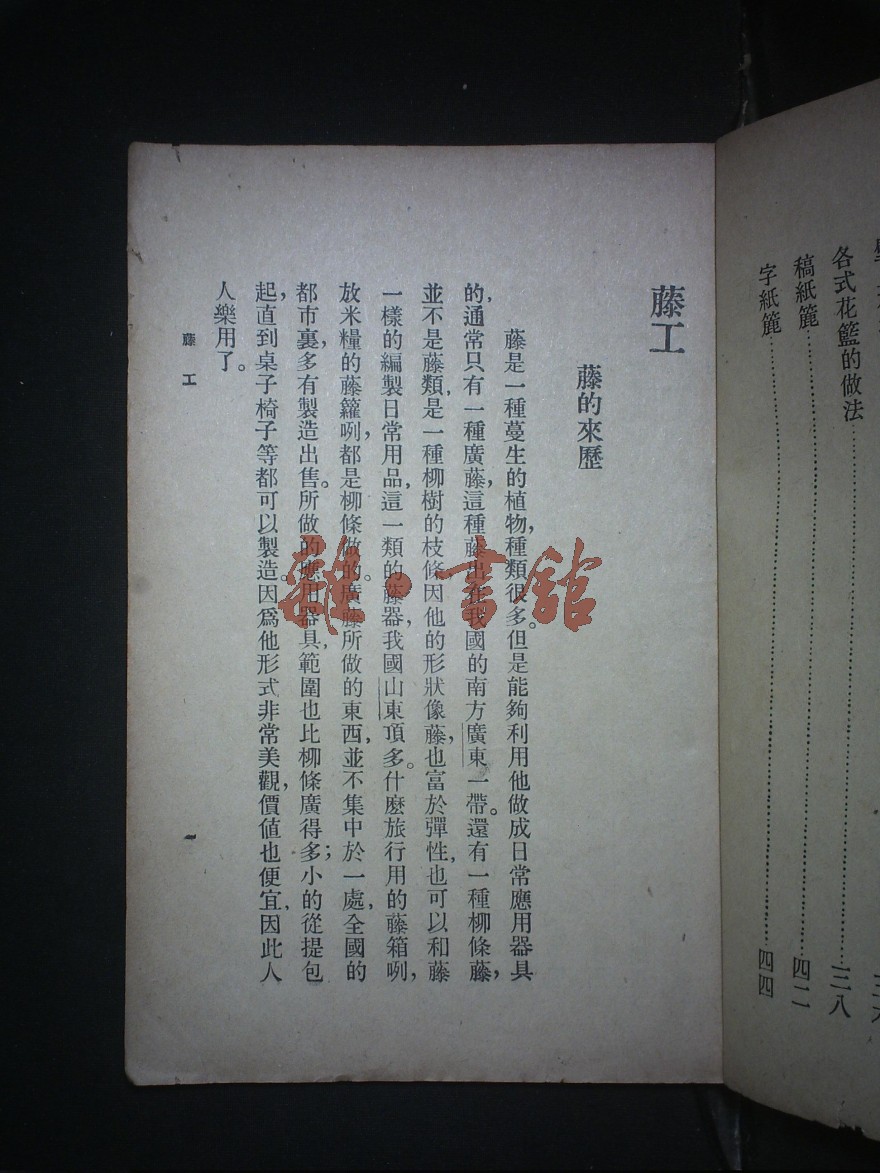 各式花籃的做法……三八
稿紙簏……四二
字紙簏……四四
藤工
藤的來歷
藤是一種蔓生的植物，種類很多。但是能夠利用他做成日常應用器具
的，通常只有一種廣藤，這種藤出在我國的南方廣東一帶。還有一種柳條藤，
並不是藤類，是一種柳樹的枝條因他的形狀像藤，也富於彈性，也可以和藤
一樣的編製日常用品，這一類的藤器，我國山東頂多。什麼旅行用的藤箱咧，
放米糧的藤籮咧，都是柳條做的。廣藤所做的東西，並不集中於一處，全國的
都市裏，多有製造出售。所做的應用器具，範圍也比柳條廣得多；小的從提包
起，直到桌子椅子等都可以製造。因爲他形式非常美觀，價値也便宜，因此人
人樂用了。
藤工
一
雜·書館